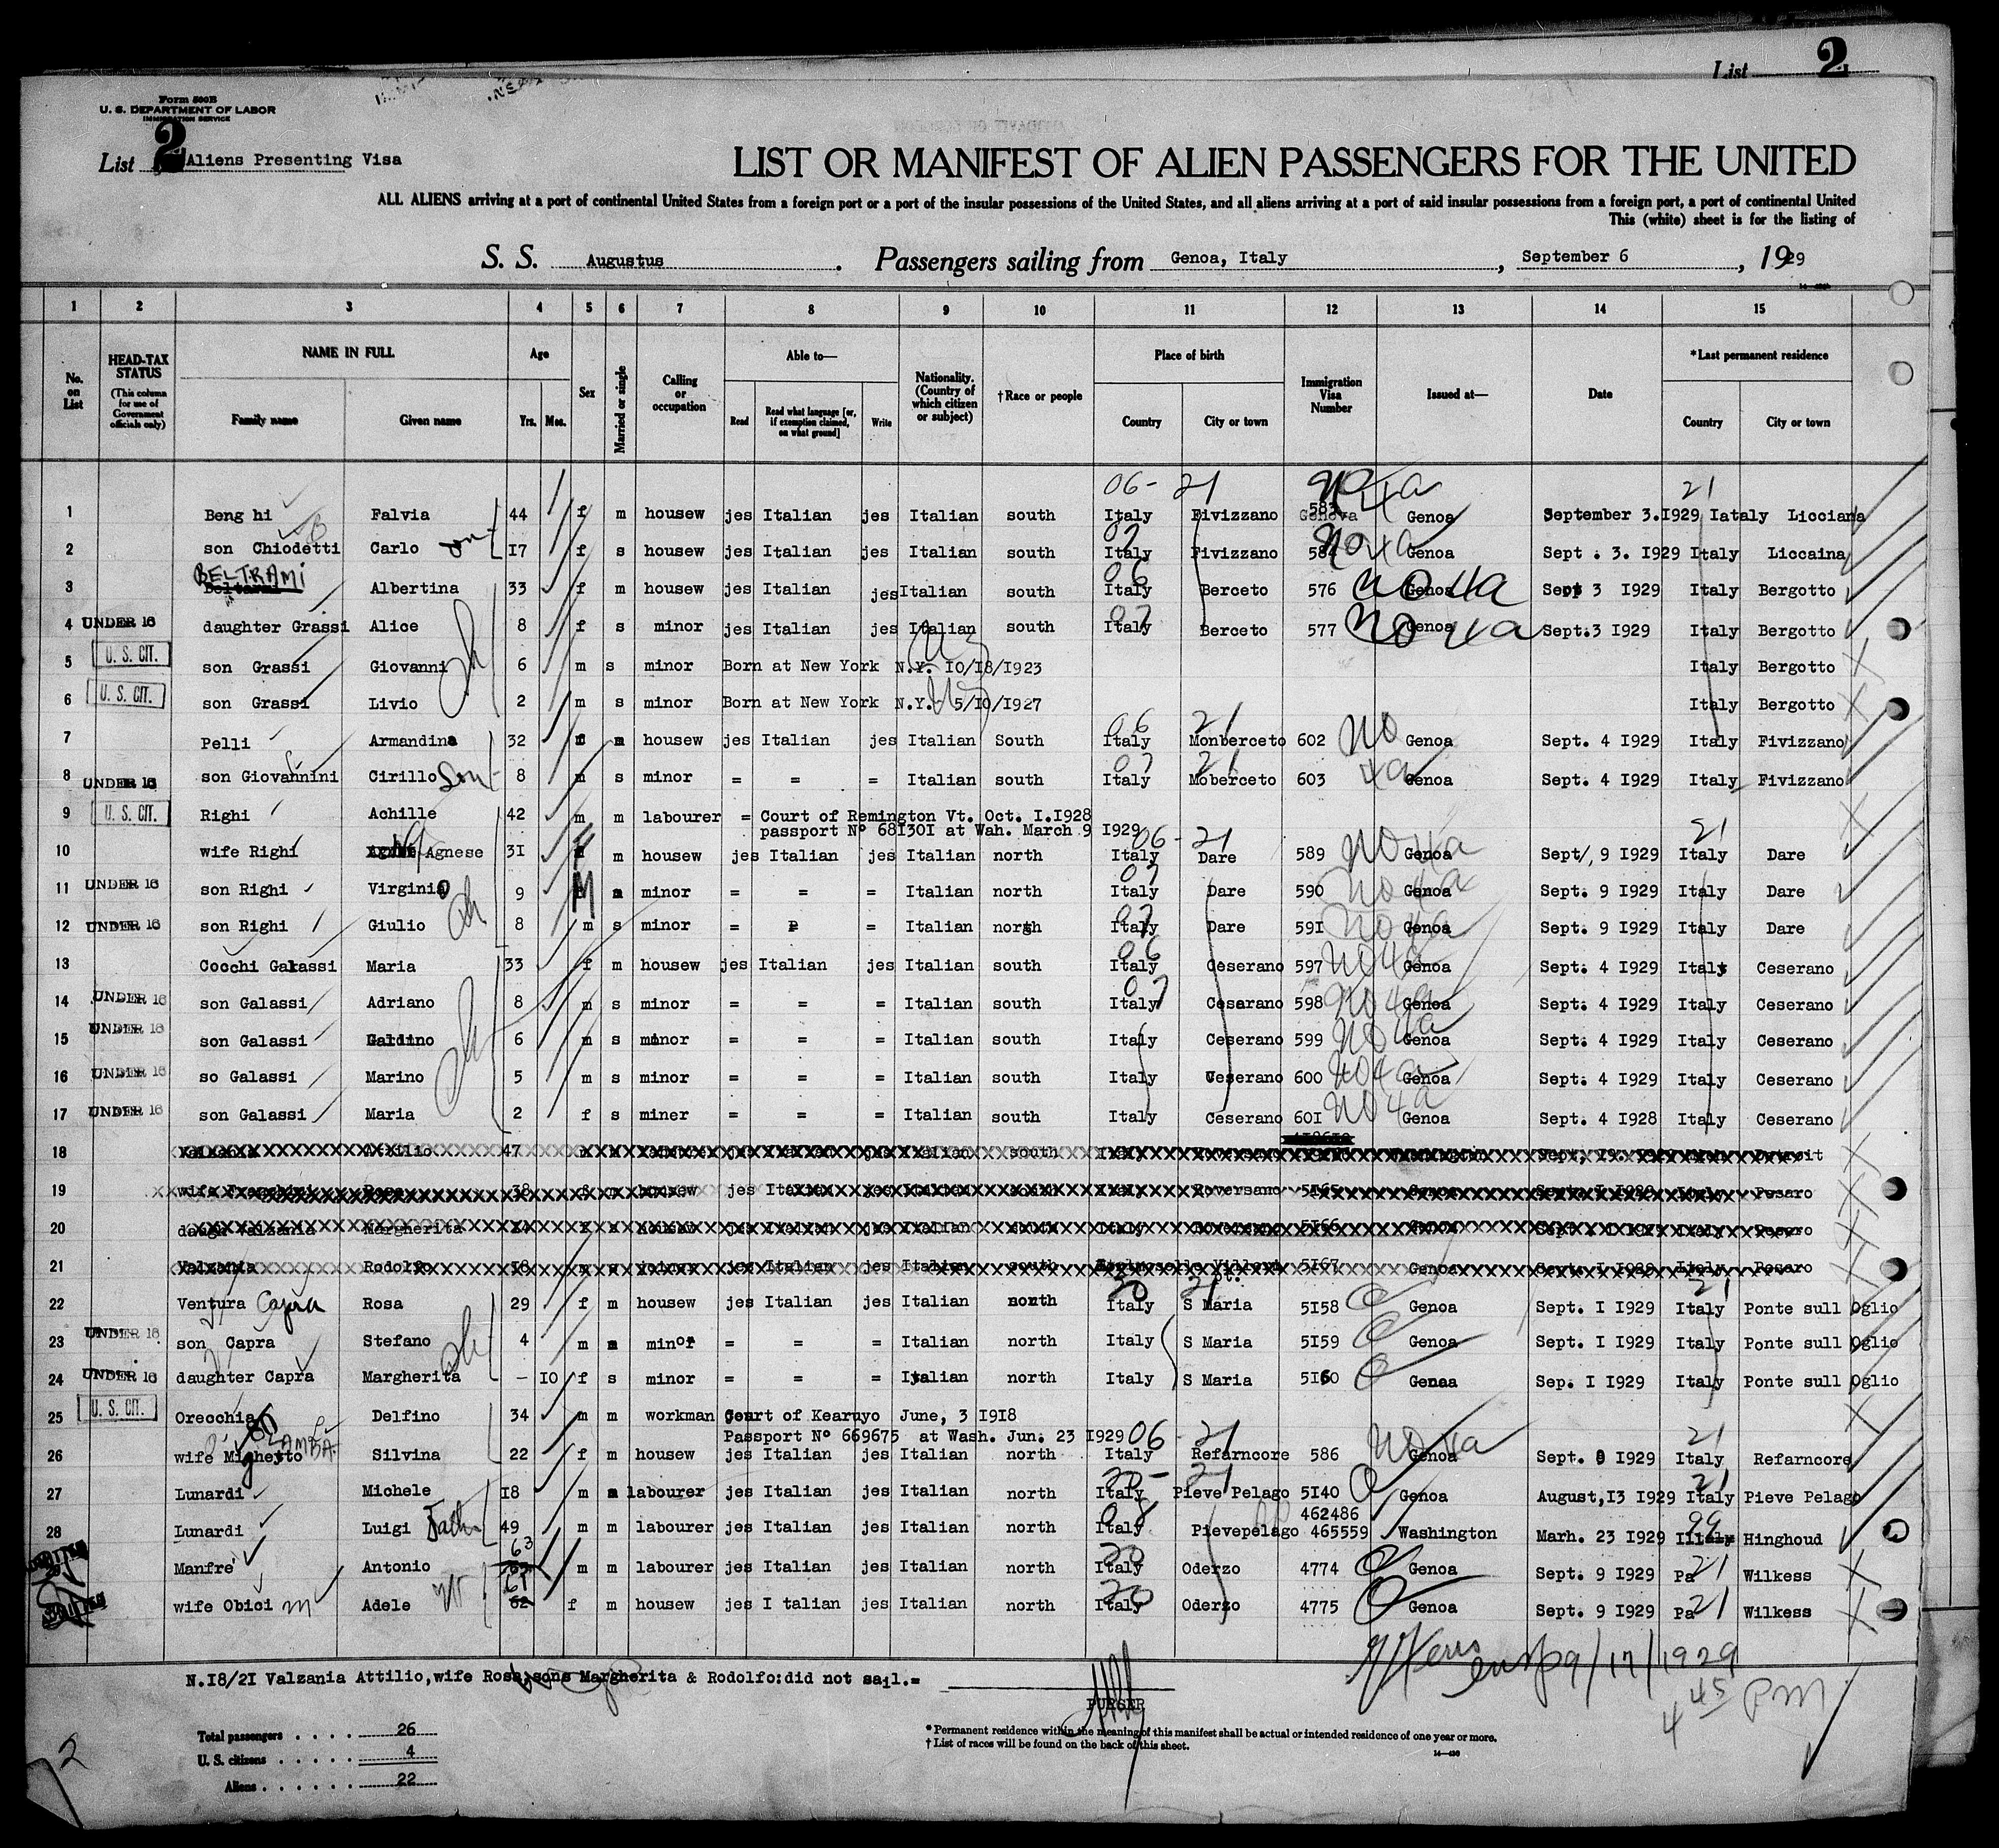 List 2
Form 500B
U. S. DEPARTMENT OF LABOR
IMMIGRATION SERVICE
List 2 Aliens Presenting Visa
LIST OR MANIFEST OF ALIEN PASSENGERS FOR THE UNITED
ALL ALIENS arriving at a port of continental United States from a foreign port or a port of the insular possessions of the United States, and all aliens arriving at a port of said insular possessions from a foreign port, a port of continental United
This (white) sheet is for the listing of
S. S. Augustus . Passengers sailing from Genoa, Italy , September 6 , 1929
1 2 3 4 5 6 7 8 9 10 11 12 13 14 15
No. on List
HEAD-TAX STATUS (This column for use of Government officials only)
NAME IN FULL Family name Given name
Age Yrs. Mos.
Sex
Married or single
Calling or occupation
Able to— Read Read what language [or, if exemption claimed, on what ground] Write
Nationality. (Country of which citizen or subject)
†Race or people
Place of birth Country City or town
Immigration Visa Number
Issued at—
Date
*Last permanent residence Country City or town
06- 21 No 4a 21
1 Beng hi Falvia 44 f m housew jes Italian jes Italian south Italy Fivizzano 583 Genova Genoa September 3.I929 Iataly Licciana
2 son Chiodetti Carlo son I7 f s housew jes Italian jes Italian south Italy Fivizzano 584 Genoa Sept . 3. I929 Italy Liccaina
3 BELTRAMI Albertina 33 f m housew jes Italian jes Italian south Italy Berceto 576 Genoa Sept 3 I929 Italy Bergotto
4 UNDER 16 daughter Grassi Alice 8 f s minor jes Italian jes Italian south Italy Berceto 577 Genoa Sept.3 I929 Italy Bergotto
5 U. S. CIT. son Grassi Giovanni 6 m s minor Born at New York N.Y. I0/I8/I923 Italy Bergotto
6 U. S. CIT. son Grassi Livio 2 m s minor Born at New York N.Y. 5/I0/I927 Italy Bergotto
7 Pelli Armandina 32 f m housew jes Italian jes Italian South Italy Monberceto 602 Genoa Sept. 4 I929 Italy Fivizzano
8 UNDER 16 son Giovannini Cirillo Son 8 m s minor = = = Italian south Italy Moberceto 603 Genoa Sept. 4 I929 Italy Fivizzano
9 U. S. CIT. Righi Achille 42 m m labourer = Court of Remington Vt. Oct. I.I928
passport Nº 68I30I at Wah. March 9 I929
10 wife Righi Agnese 3I m housew jes Italian jes Italian north Italy Dare 589 Genoa Sept/, 9 I929 Italy Dare
11 UNDER 16 son Righi Virginio 9 M minor = = = Italian north Italy Dare 590 Genoa Sept. 9 I929 Italy Dare
12 UNDER 16 son Righi Giulio 8 m s minor = = Italian north Italy Dare 59I Genoa Sept. 9 I929 Italy Dare
13 Cocchi Galassi Maria 33 f m housew jes Italian jes Italian south Italy Ceserano 597 Genoa Sept. 4 I929 Italy Ceserano
14 UNDER 16 son Galassi Adriano 8 m s minor = = = Italian south Italy Cesarano 598 Genoa Sept. 4 I929 Italy Ceserano
15 UNDER 16 son Galassi Galdino 6 m s minor = = = Italian south Italy Ceserano 599 Genoa Sept. 4 I929 Italy Ceserano
16 UNDER 16 so Galassi Marino 5 m s minor = = = Italian south Italy Ceserano 600 Genoa Sept. 4 I929 Italy Ceserano
17 UNDER 16 son Galassi Maria 2 f s miner = = = Italian south Italy Ceserano 60I Genoa Sept. 4 I928 Italy Ceserano
18 47 south
19 38 housew jes Roversano 5I65 Genoa Pesaro
20 daugh Valzania Margherita 5I66 Genoa Pesaro
21 Valzania Rodolfo I8 jes Italian jes Italian south 5I67 Genoa Sept. I I929 Italy Pesaro
22 Ventura Capra Rosa 29 f m housew jes Italian jes Italian north Italy S Maria 5I58 Genoa Sept. I I929 Italy Ponte sull Oglio
23 UNDER 16 son Capra Stefano 4 m minor = = = Italian north Italy S Maria 5I59 Genoa Sept. I I929 Italy Ponte sull Oglio
24 UNDER 16 daughter Capra Margherita - I0 f s minor = = = Italian north Italy S Maria 5I60 Genoa Sep. I I929 Italy Ponte sull Oglio
25 U. S. CIT. Orecchia Delfino 34 m m workman Court of Kearuyo June, 3 I9I8
Passport Nº 669675 at Wash. Jun. 23 I929
26 wife Mighetto Silvina 22 f m housew jes Italian jes Italian north Italy Refarncore 586 Genoa Sept. I929 Italy Refarncore
27 Lunardi Michele I8 m labourer jes Italian jes Italian north Italy Pieve Pelago 5I40 Genoa August,I3 I929 Italy Pieve Pelago
462486
28 Lunardi Luigi Fath 49 m m labourer jes Italian jes Italian north Italy Pievepelago 465559 Washington Marh. 23 I929 Hinghoud
Manfre' Antonio 63 m m labourer jes Italian jes Italian north Italy Oderzo 4774 Genoa Sept. 9 I929 Pa Wilkess
wife Obici Adele 61 f m housew jes I talian jes Italian north Italy Oderzo 4775 Genoa Sept. 9 I929 Pa Wilkess
N.I8/2I Valzania Attilio,wife Rosa,sons Margherita & Rodolfo:did not sail.=
9/17/1929
4 45 PM
PURSER
Total passengers . . . . 26
U. S. citizens . . . . . 4
Aliens . . . . . . 22
* Permanent residence within the meaning of this manifest shall be actual or intended residence of one year or more.
† List of races will be found on the back of this sheet.
2